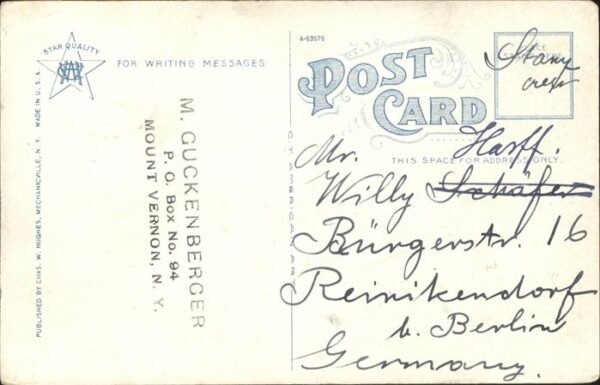 STAR QUALITY
MADE IN U.S.A.
PUBLISHED BY CHAS. W. HUGHES, MECHANICVILLE, N. Y.
FOR WRITING MESSAGES
M. GUCKENBERGER
P. O. Box No. 94
MOUNT VERNON, N. Y.
A-63575
POST
CARD
PLACE
Stamp
over
THIS SPACE FOR ADDRESS ONLY.
Mr. Harff.
Willy Schäfer
Bürgerstr. 16
Reinikendorf
b. Berlin
Germany.